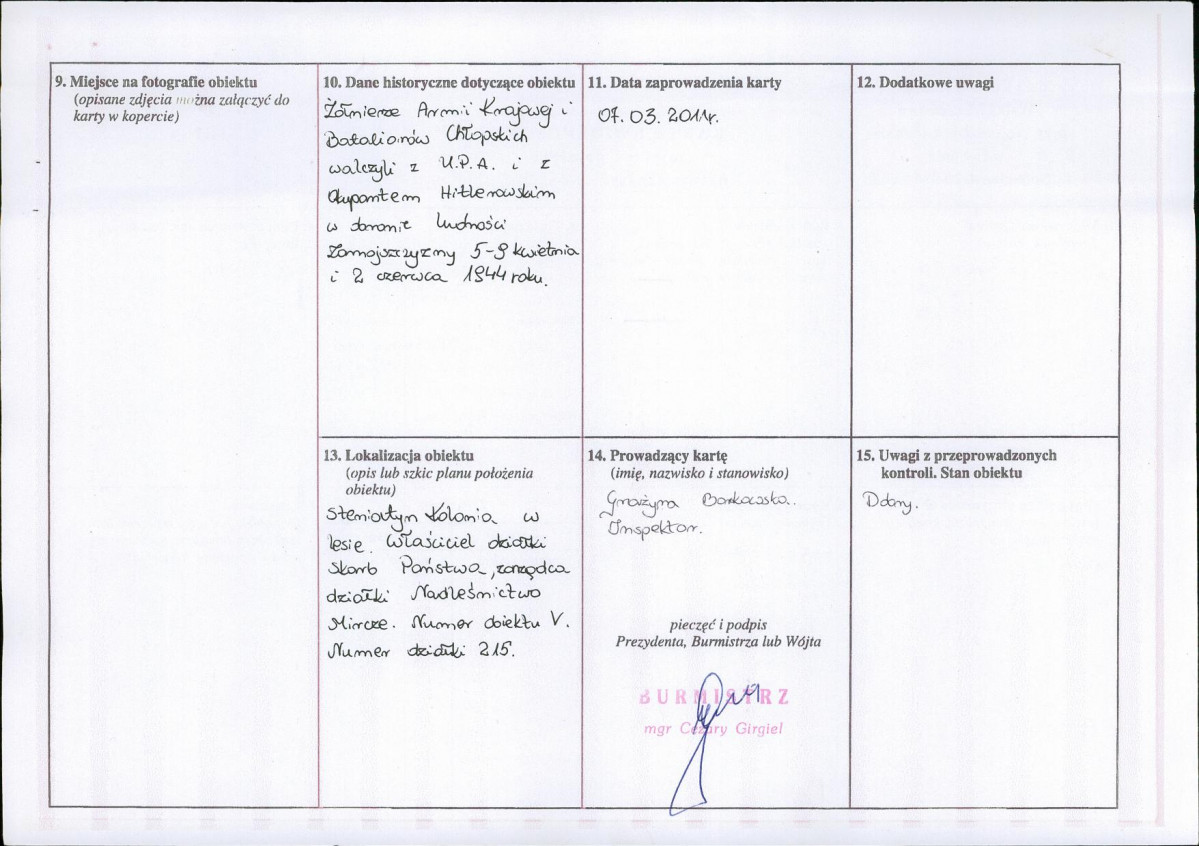 9. Miejsce na fotografie obiektu
(opisane zdjęcia można załączyć do
karty w kopercie)
10. Dane historyczne dotyczące obiektu
Żołnierze Armii Krajowej i
Batalionów Chłopskich
walczyli z U.P.A. i z
okupantem Hitlerowskim
w obronie ludności
Zamojszczyzny 5-9 kwietnia
i 2 czerwca 1944 roku.
11. Data zaprowadzenia karty
07. 03. 2011r.
12. Dodatkowe uwagi
13. Lokalizacja obiektu
(opis lub szkic planu położenia
obiektu)
Steniatyn Kolonia w
lesie. Właściciel działki
Skarb Państwa, zarządca
działki Nadleśnictwo
Mircze. Numer obiektu V.
Numer działki 215.
14. Prowadzący kartę
(imię, nazwisko i stanowisko)
Grażyna Borkowska.
Inspektor.
pieczęć i podpis
Prezydenta, Burmistrza lub Wójta
BURMISTRZ
mgr Cezary Girgiel
15. Uwagi z przeprowadzonych
kontroli. Stan obiektu
Dobry.